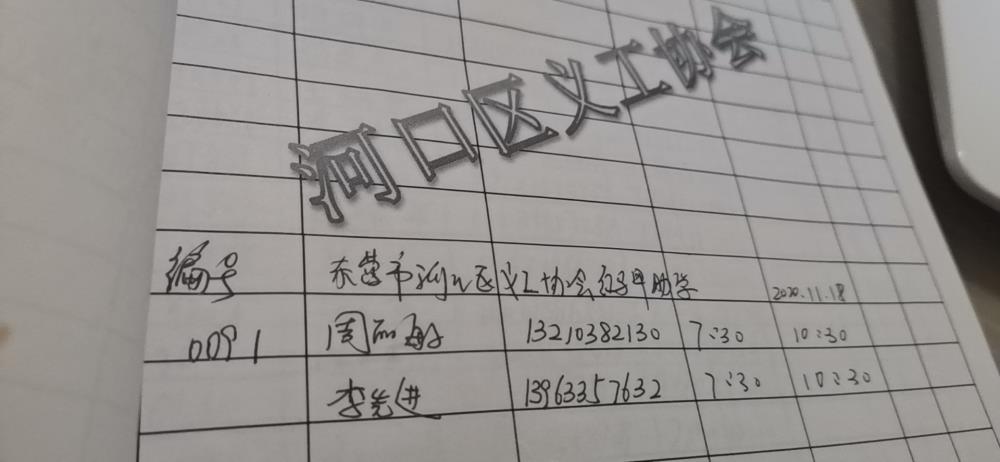 河口区义工协会
编号 东营市河口区义工协会红马甲助学 2020.11.18
0091 周丽敏 13210382130 7:30 10:30
李先进 13963357632 7:30 10:30